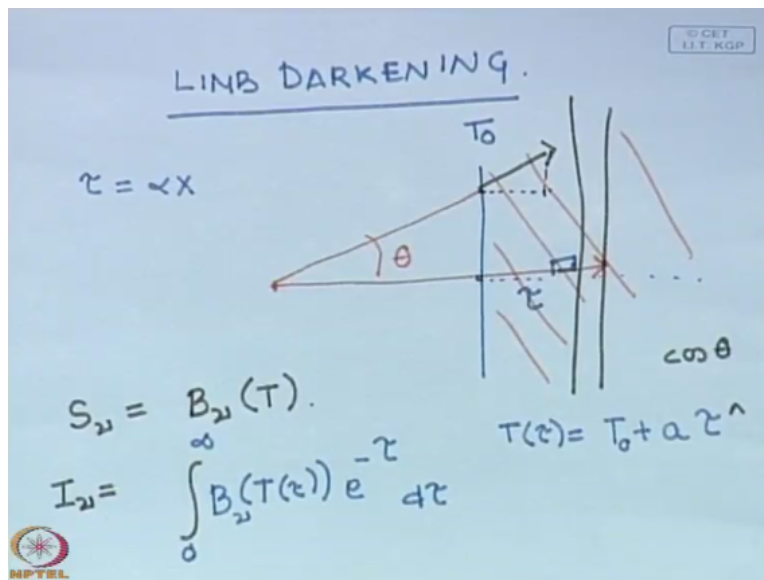 © CET
I.I.T. KGP
LIMB DARKENING.
T₀
τ = αX
θ
τ
. . . .
cos θ
S_ν = B_ν(T).
T(τ) = T₀ + a τ^
I_ν = ∫₀^∞ B_ν(T(τ)) e^-τ dτ
NPTEL